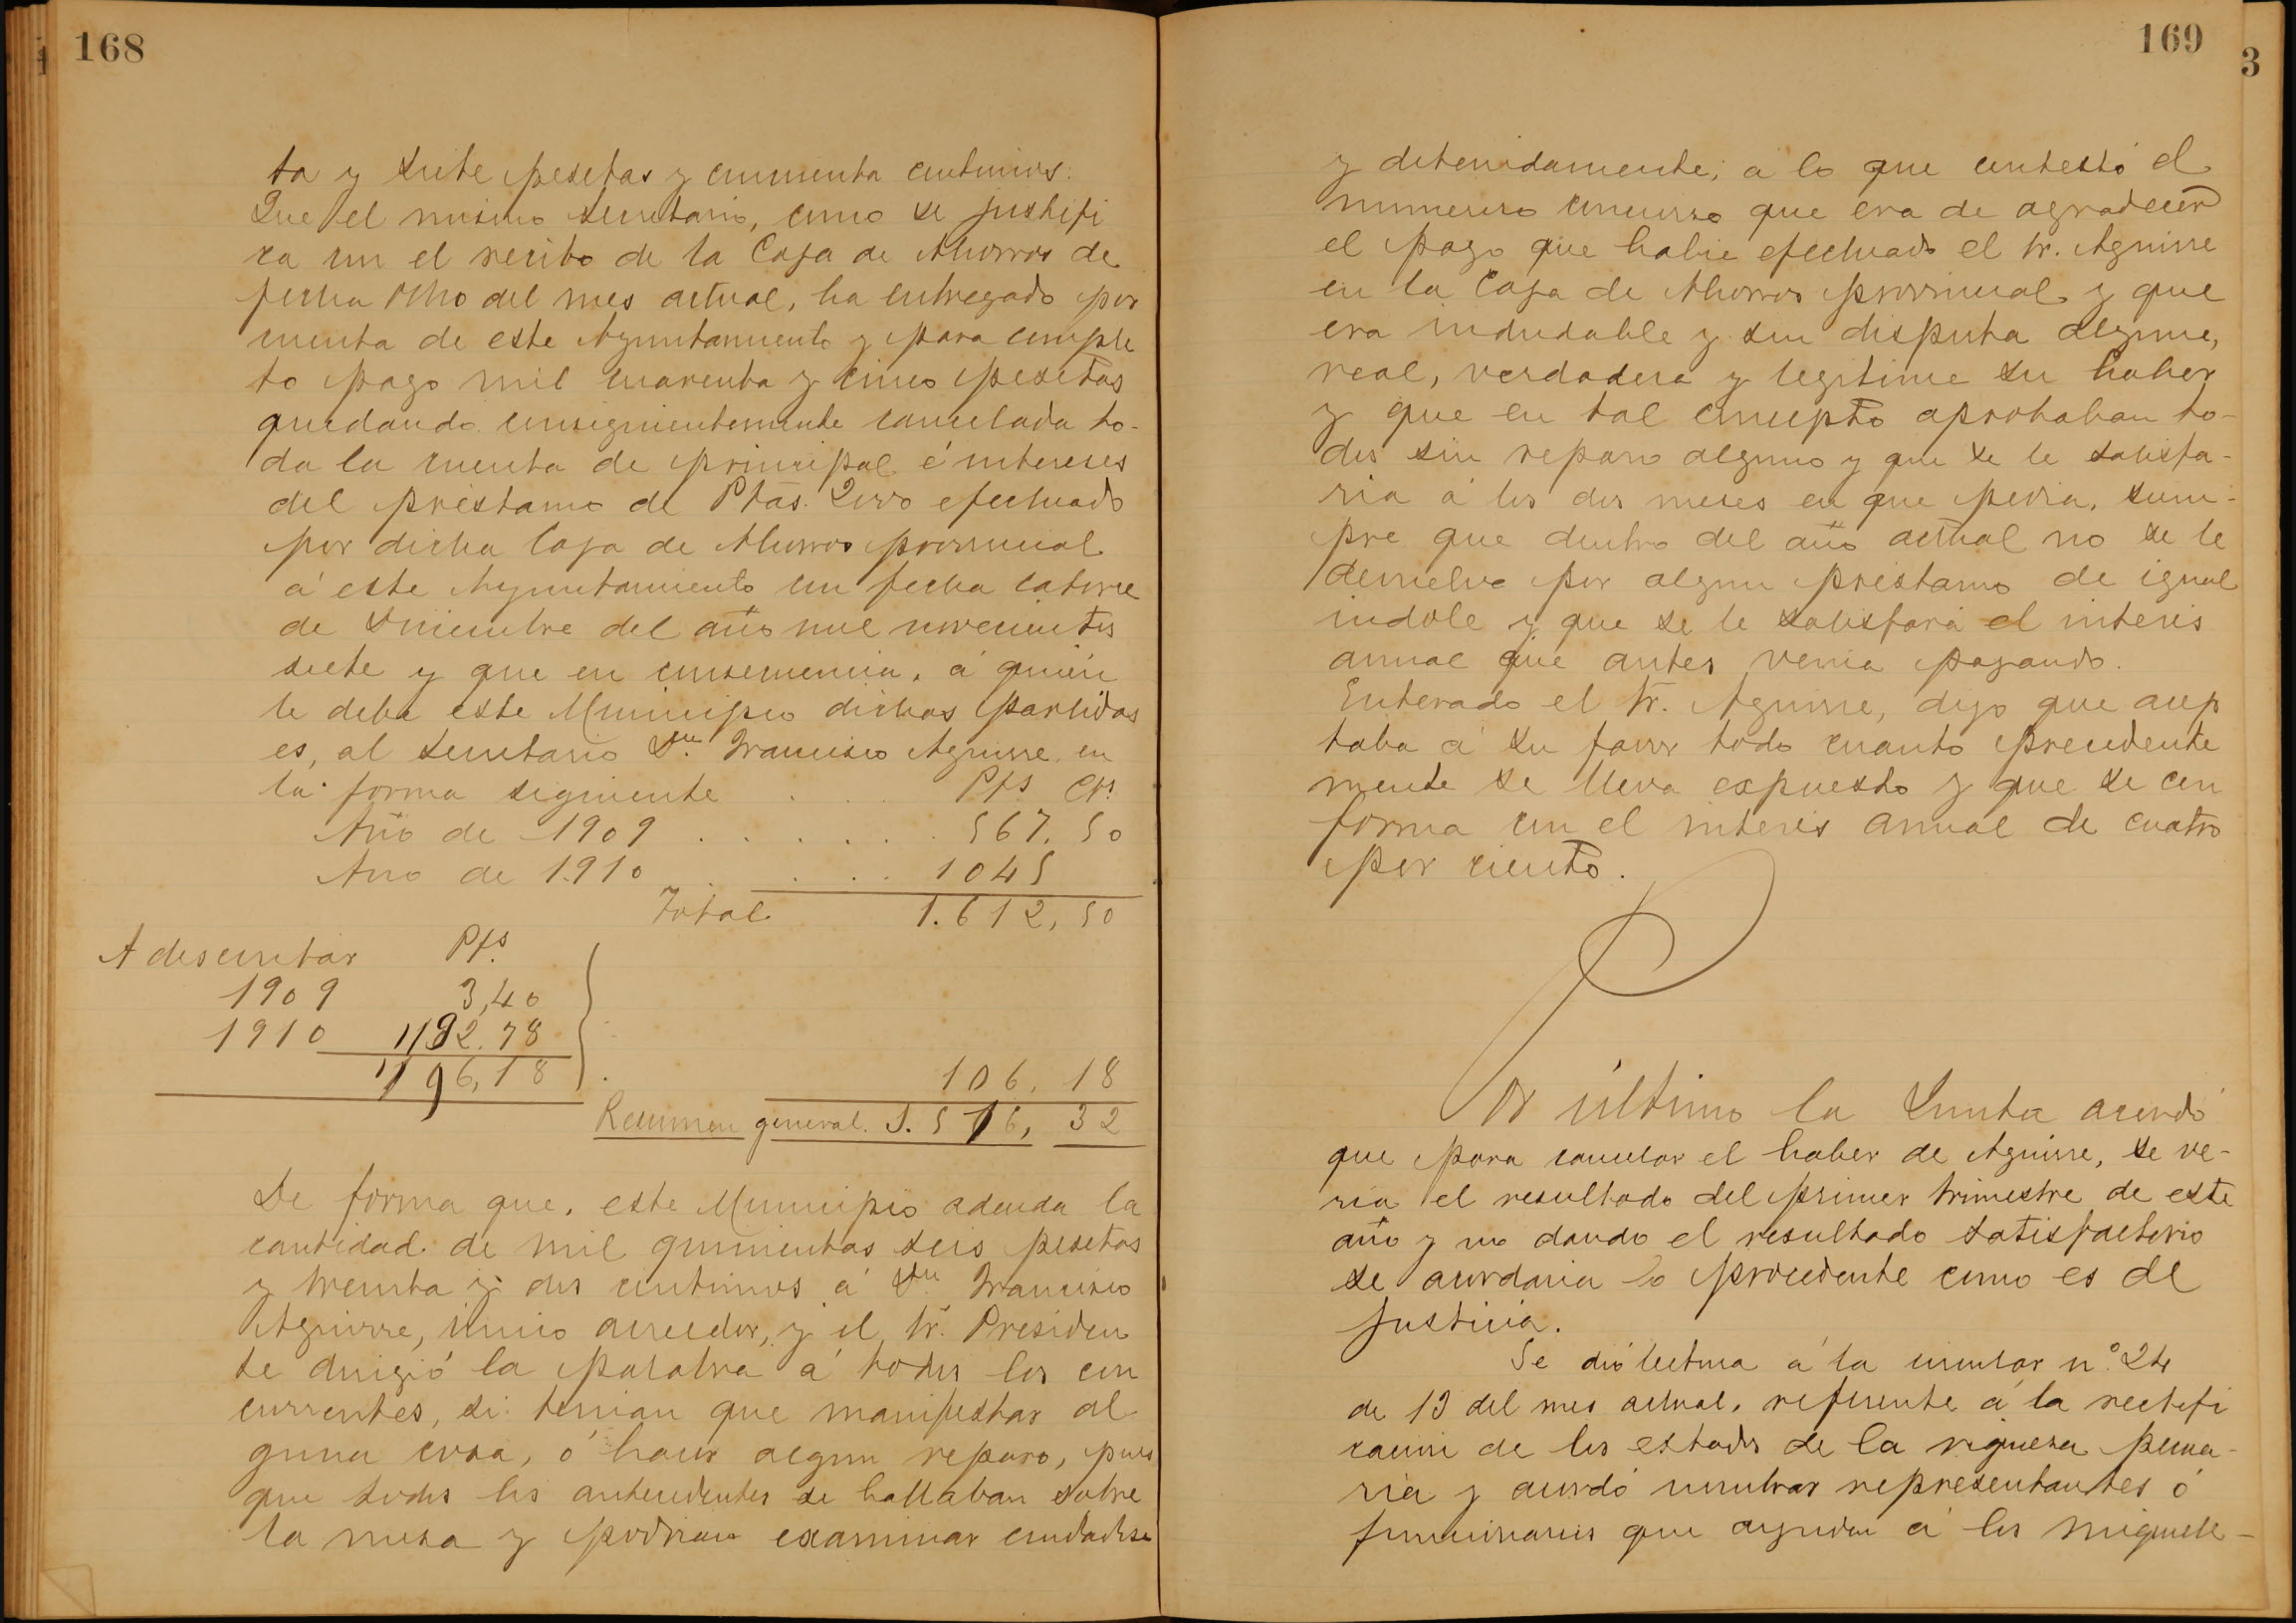 168
ta y siete pesetas y cincuenta centimos.
Que el mismo secretario, como se justifi
ca con el recibo de la Caja de Ahorros de
fecha ocho del mes actual, ha entregado por
cuenta de este Ayuntamiento y para comple
to pago mil cuarenta y cinco pesetas
quedando consiguientemente cancelada to-
da la cuenta de principal é intereses
del préstamo de Ptas. 2000 efectuado
por dicha Caja de Ahorros provincial
á este Ayuntamiento con fecha catorce
de Diciembre del año mil novecientos
siete y que en consecuencia, á quien
le debe este Municipio dichas partidas
es, al secretario Dn. Francisco Aguirre en
la forma siguiente . . . Pts Cts.
Año de 1909 . . . . . . 567.50
Año de 1.910 . . . . 1045
Total 1.612,50
A descontar Pts.
1909 3,40
1910 1192.78
1196,18
106.18
Resumen general. 1.516, 32
De forma que, este Municipio adeuda la
cantidad de mil quinientas seis pesetas
y treinta y dos centimos á Dn. Francisco
Aguirre, único acreedor, y el Sr. Presiden
te dirigió la palabra á todos los con
currentes, si tenian que manifestar al
guna cosa, ó hacer algun reparo, pues
que todos los antecedentes se hallaban sobre
la mesa y podrian examinar cuidadosa
169
3
y detenidamente; a lo que contestó el
numeroso concurso que era de agradecer
el pago que habia efectuado el Sr. Aguirre
en la Caja de Ahorros provincial y que
era indudable y sin disputa alguna,
real, verdadera y legitima su haber
y que en tal concepto aprobaban to-
dos sin reparo alguno y que se le satisfa-
ria á los dos meses en que pedia, siem-
pre que dentro del año actual no se le
devuelva por algun préstamo de igual
indole y que se le satisfará el interés
anual que antes venia pagando.
Enterado el Sr. Aguirre, dijo que acep
taba á su favor todo cuanto precedente
mente se lleva expuesto y que se con
forma con el interés anual de cuatro
por ciento.
Por último la Junta acordó
que para cancelar el haber de Aguirre, se ve-
ria el resultado del primer trimestre de este
año y no dando el resultado satisfactorio
se acordaria lo procedente como es de
justicia.
Se dió lectura á la circular n.º 24
de 13 del mes actual, referente á la rectifi
cación de los estados de la riqueza pecua-
ria y acordó nombrar representantes ó
funcionarios que ayuden á los miquele-